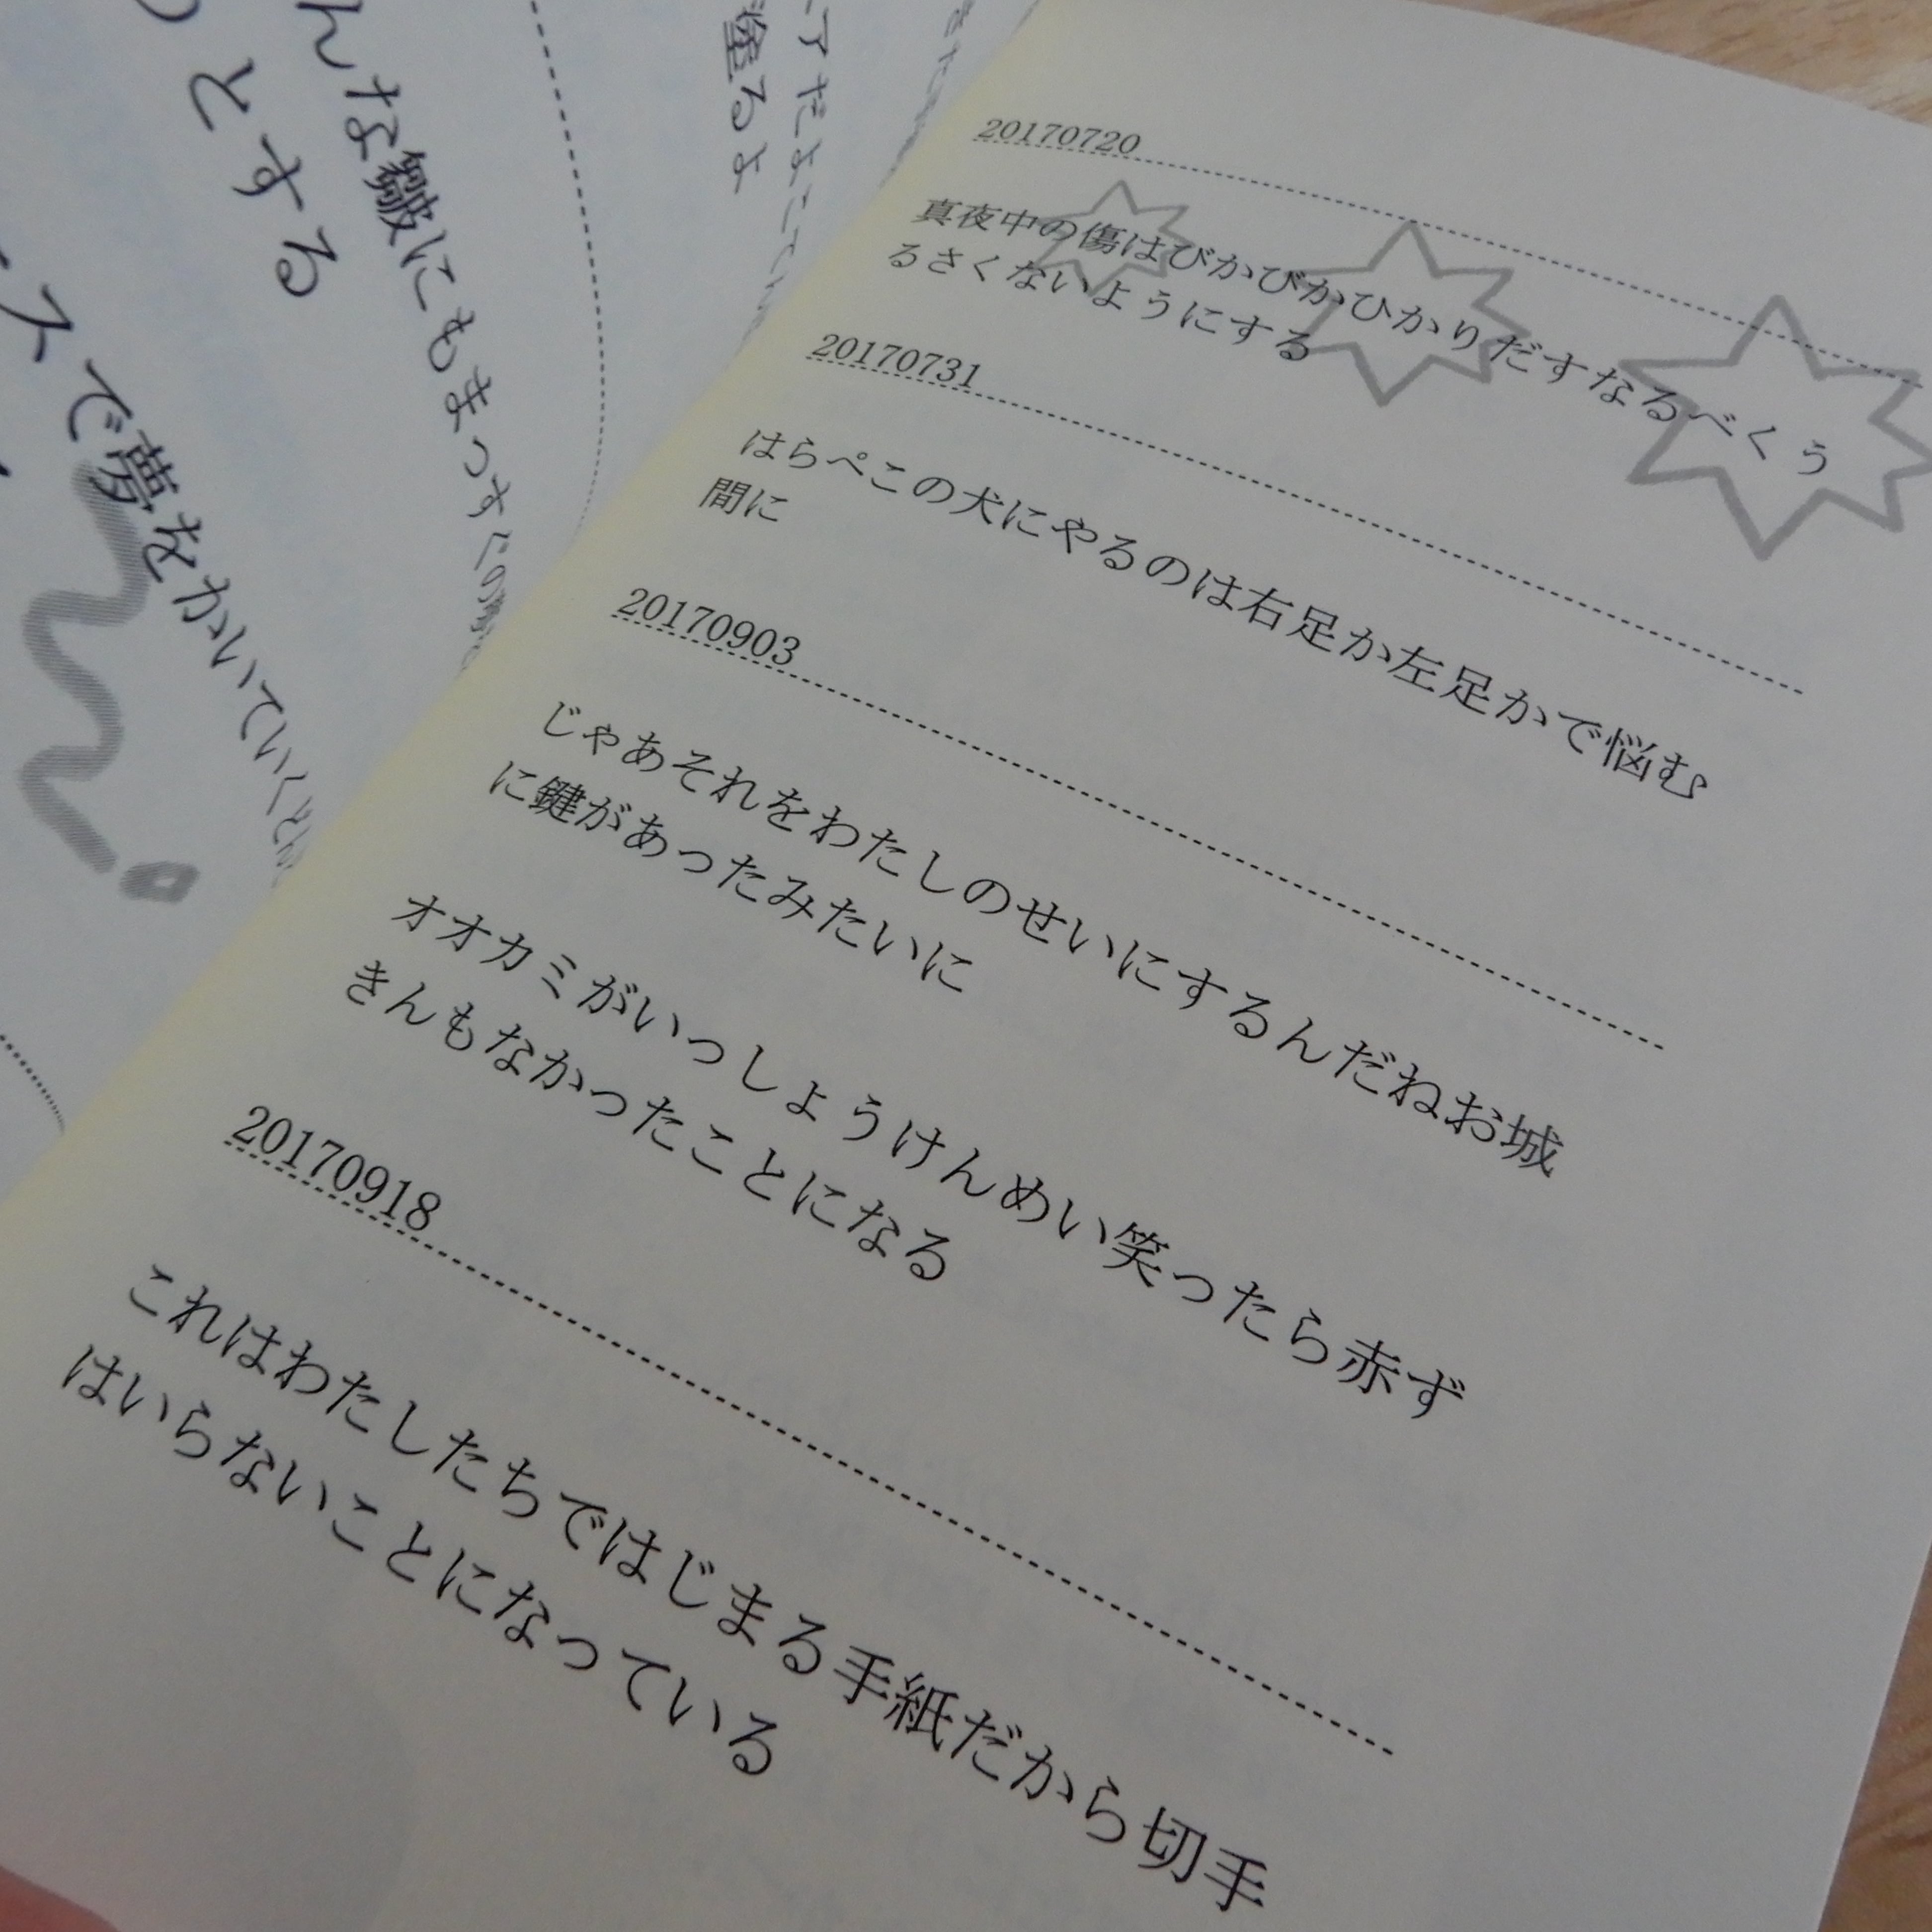 んな皺にもまっすぐの
とする
スで夢をかいていくとん
アだよ
塗るよ
20170720
真夜中の傷はびかびかひかりだすなるべくう
るさくないようにする
20170731
はらぺこの犬にやるのは右足か左足かで悩む
間に
20170903
じゃあそれをわたしのせいにするんだねお城
に鍵があったみたいに
オオカミがいっしょうけんめい笑ったら赤ず
きんもなかったことになる
20170918
これはわたしたちではじまる手紙だから切手
はいらないことになっている